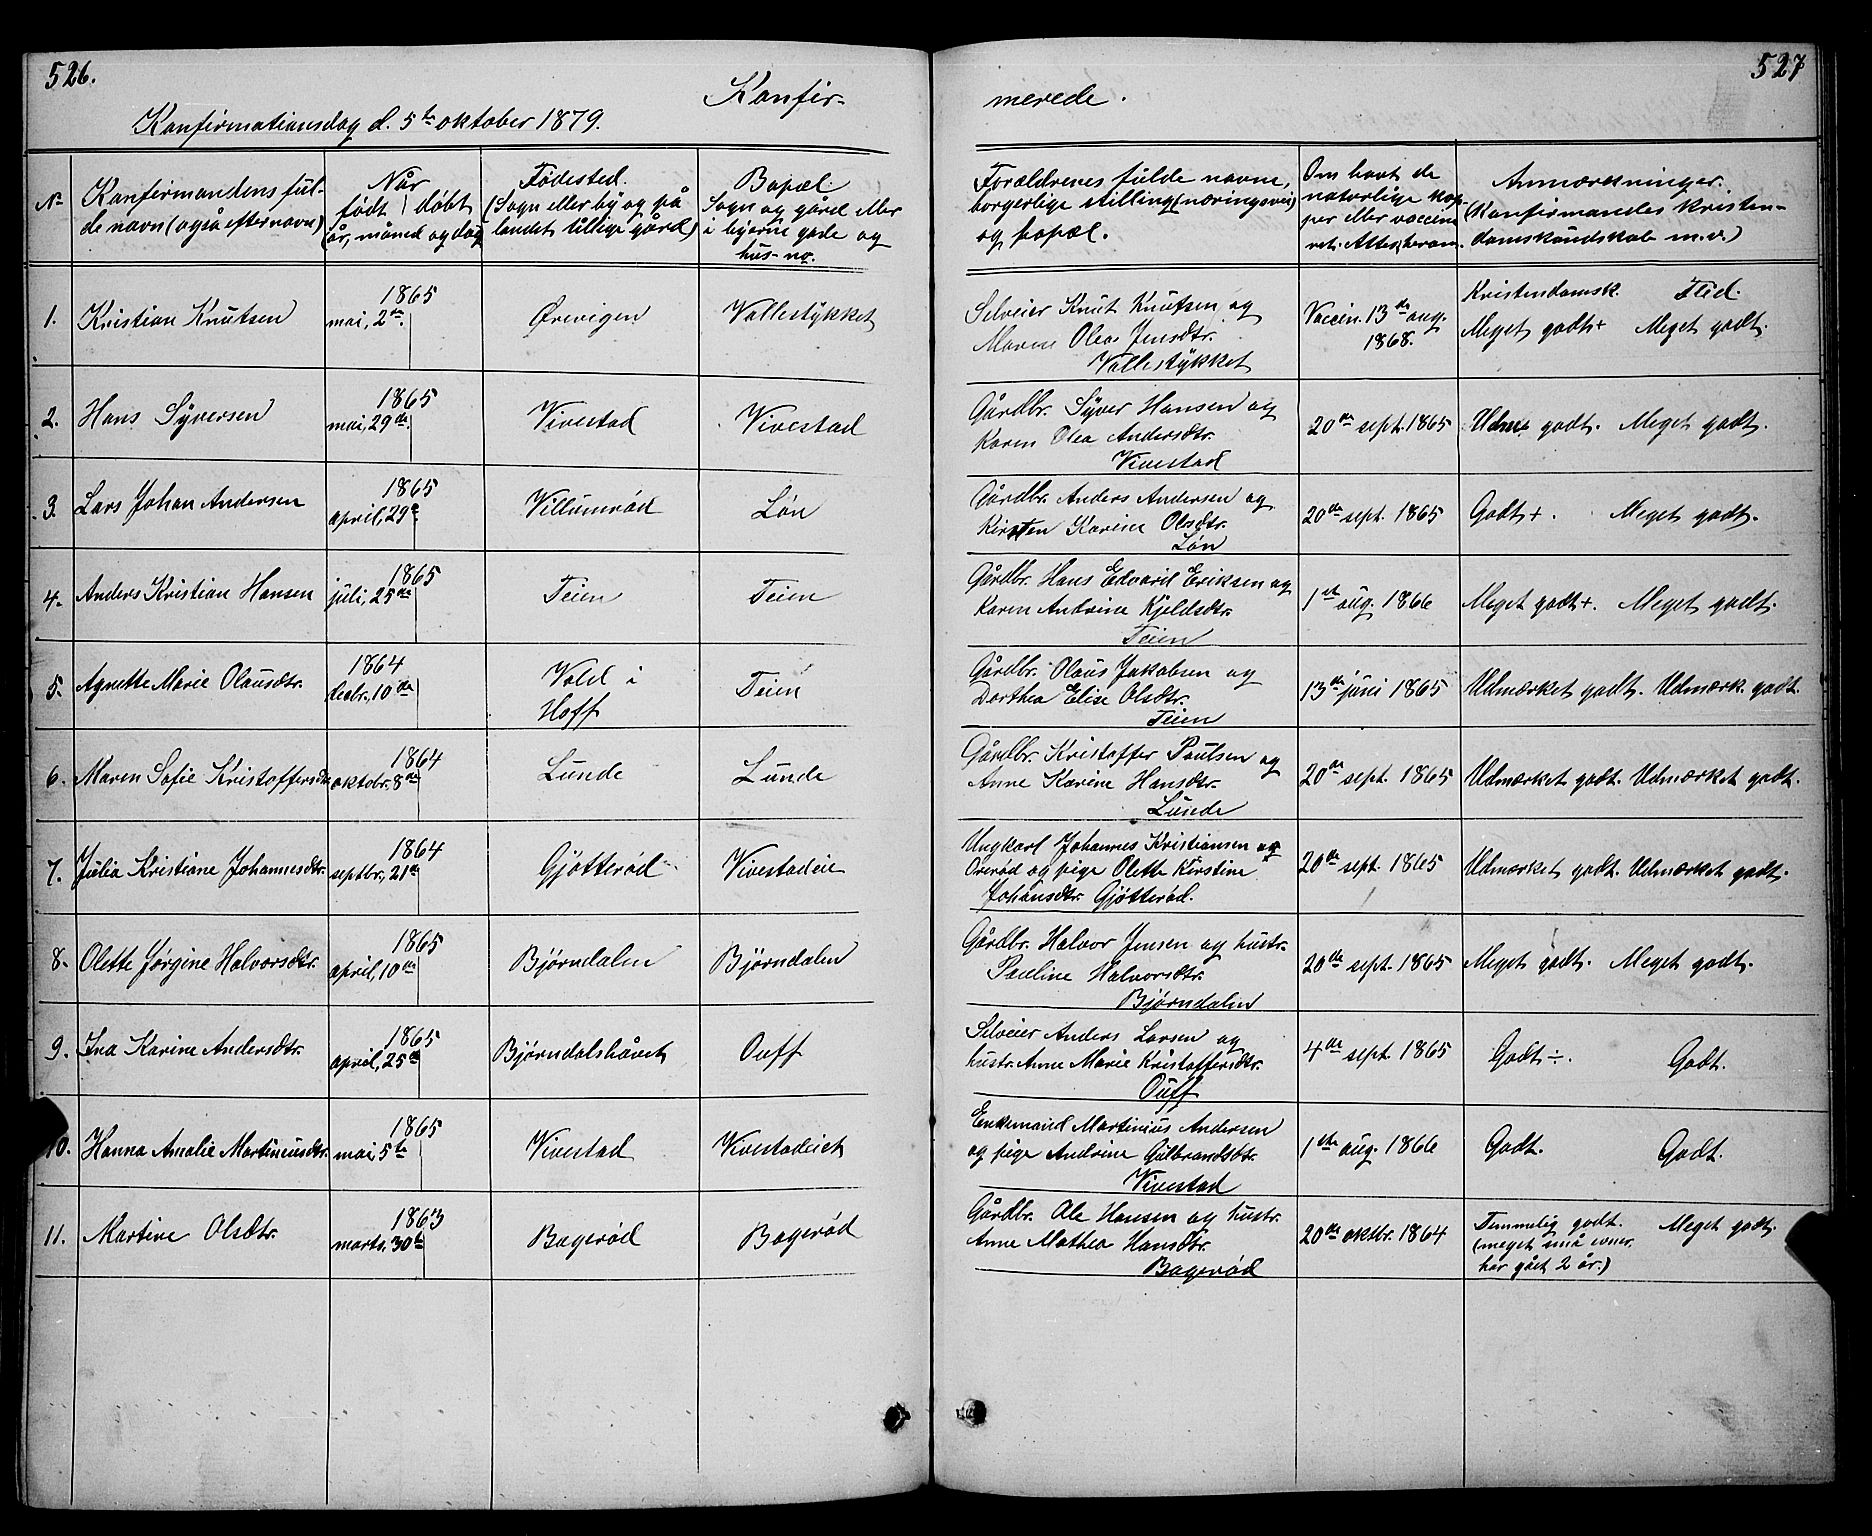 526.
Konfir-
Konfirmationsdag d. 5te oktober 1879.
No
Konfirmandens ful-
de navn (også efternavn)
Når
født | døbt
(år, måned og dag
Fødested.
(Sogn eller by og på
landet tillige gård)
Bopæl.
Sogn og gård eller
i byerne gade og
hus-no.
1. Kristian Knutsen
1865
mai, 2den
Ørevigen
Vallestykket
2. Hans Syversen
1865
mai, 29de
Vivestad
Vivestad
3. Lars Johan Andersen
1865
april, 29e
Villumrød
Løn
4. Anders Kristian Hansen
1865
juli, 25de
Teien
Teien
5. Agnette Marie Olausdtr.
1864
decbr. 10de
Vold i
Hoff
Teien
6. Maren Sofie Kristoffersdtr
1864
oktobr. 8de
Lunde
Lunde
7. Julia Kristiane Johannesdtr.
1864
septbr. 21de
Gjøtterød
Vivestadeie
8. Olette Jørgine Halvorsdtr.
1865
april, 10de
Bjørndalen
Bjørndalen
9. Ina Karine Andersdtr.
1865
april, 25de
Bjørndalshåvet
Ouff
10. Hanna Amalie Martiniusdtr.
1865
mai 5te
Vivestad
Vivestadeiet
11. Martine Olsdtr.
1863
marts. 30te
Bagerød
Bagerød
527
merede.
Forældrenes fulde navne,
borgerlige stilling (næringsvei)
og bopæl.
Om havt de
naturlige kop-
per eller vaccine-
ret. Attest herom.
Anmærkninger.
(Konfirmandes kristen-
domskundskab m.v.)
Selveier Knut Knutsen og
Maren Olea Jensdtr.
Vallestykket
Vaccin. 13de aug.
1868.
Kristendomsk. Flid.
Meget godt+ Meget godt.
Gårdbr. Syver Hansen og
Karen Olea Andersdtr.
Vivestad
20de sept. 1865
Udmr godt. Meget godt.
Gårdbr. Anders Andersen og
Kirsten Karine Olsdtr.
Løn
20de sept. 1865
Godt+. Meget godt.
Gårdbr. Hans Edvard Eriksen og
Karen Andrine Kjeldsdtr.
Teien
1ste aug. 1866
Meget godt+. Meget godt.
Gårdbr. Olaus Jakobsen og
Dorthea Elise Olsdtr.
Teien
13de juni 1865
Udmærket godt. Udmærk. godt.
Gårdbr. Kristoffer Paulsen og
Anne Karine Hansdtr.
Lunde
20de sept. 1865
Udmærket godt. Udmærket godt.
Ungkarl Johannes Kristiansen og
Orerød og pige Olette Kirstine
Johansdtr. Gjøtterød.
20de sept. 1865
Udmærket godt. Udmærket godt.
Gårdbr. Halvor Jensen og hustr.
Pauline Halvorsdtr.
Bjørndalen
20de sept. 1865
Meget godt. Meget godt.
Selveier Anders Larsen og
hustr. Anne Marie Kristoffersdtr.
Ouff
4de sept. 1865
Godt÷. Godt.
Enkemand Martinius Andersen
og pige Andrine Gulbrandsdtr.
Vivestad
1ste aug. 1866
Godt. Godt.
Gårdbr. Ole Hansen og hustr.
Anne Mathea Hansdtr.
Bagerød
20de oktbr. 1864
Temmelig godt. Meget godt.
(meget små evner.
har gået 2 år.)